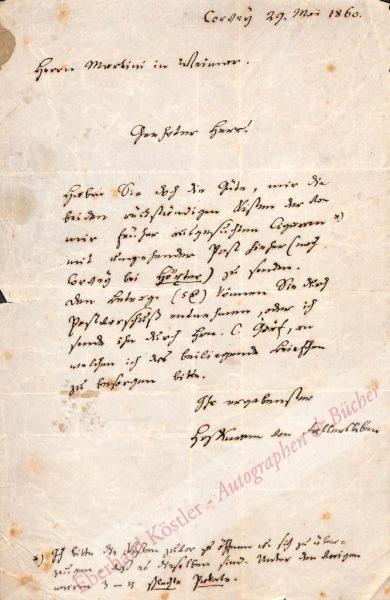 Corvey 29. Mai 1860.
Herrn Martini in Weimar.
Geehrter Herr!
Haben Sie doch die Güte, mir die
beiden rückständigen Kisten der von
mir früher ausgesuchten Cigarren *)
mit umgehender Post hieher (nach
Corvey bei Höxter) zu senden.
Den Betrag (5 ) können Sie durch
Postvorschuß entnehmen, oder ich
sende ihn durch Hrn. C. Gräf, an
welchen ich das beiliegende Briefchen
zu besorgen bitte.
Ihr ergebenster
Hoffmann von Fallersleben
*) Ich bitte die Kisten zuvor zu öffnen u. sich zu über-
zeugen daß es dieselben sind. Unter den vorigen
waren 2-3 schlechte Pakete.
Eberhard Köstler - Autographen & Bücher